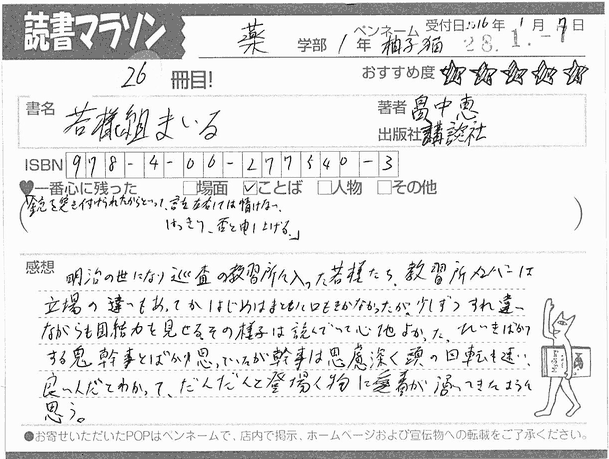 読書マラソン
薬 学部 1年 ペンネーム 柚子猫 受付日2016年1月7日
28.1.-7
26 冊目!
おすすめ度 ☆☆☆☆☆
書名 若様組まいる
著者 畠中恵
出版社 講談社
ISBN 978-4-06-277540-3
♥一番心に残った □場面 ☑ことば □人物 □その他
「銃を突き付けられたからといって、言を左右にしては情けない。
はっきり、否と申し上げる。」
感想 明治の世になり巡査の教習所に入った若様たち、教習所メンバーは
立場の違いもあってかはじめはまともに口もきかなかったが、少しずつすれ違い
ながらも団結力を見せる。その様子は読んでいて心地よかった。ひいきばかり
する鬼幹事とばかり思っていたが幹事は思慮深く頭の回転も速い、
良い人だとわかって、だんだんと登場人物に愛着が湧いてきたように
思う。
●お寄せいただいたPOPはペンネームで、店内で掲示、ホームページおよび宣伝物への転載をご了承ください。